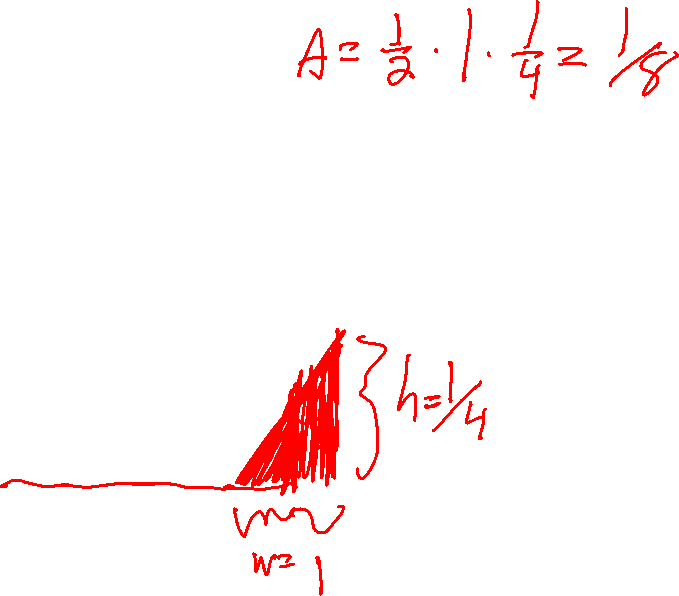 A = 1/2 · 1 · 1/4 = 1/8
h = 1/4
w = 1